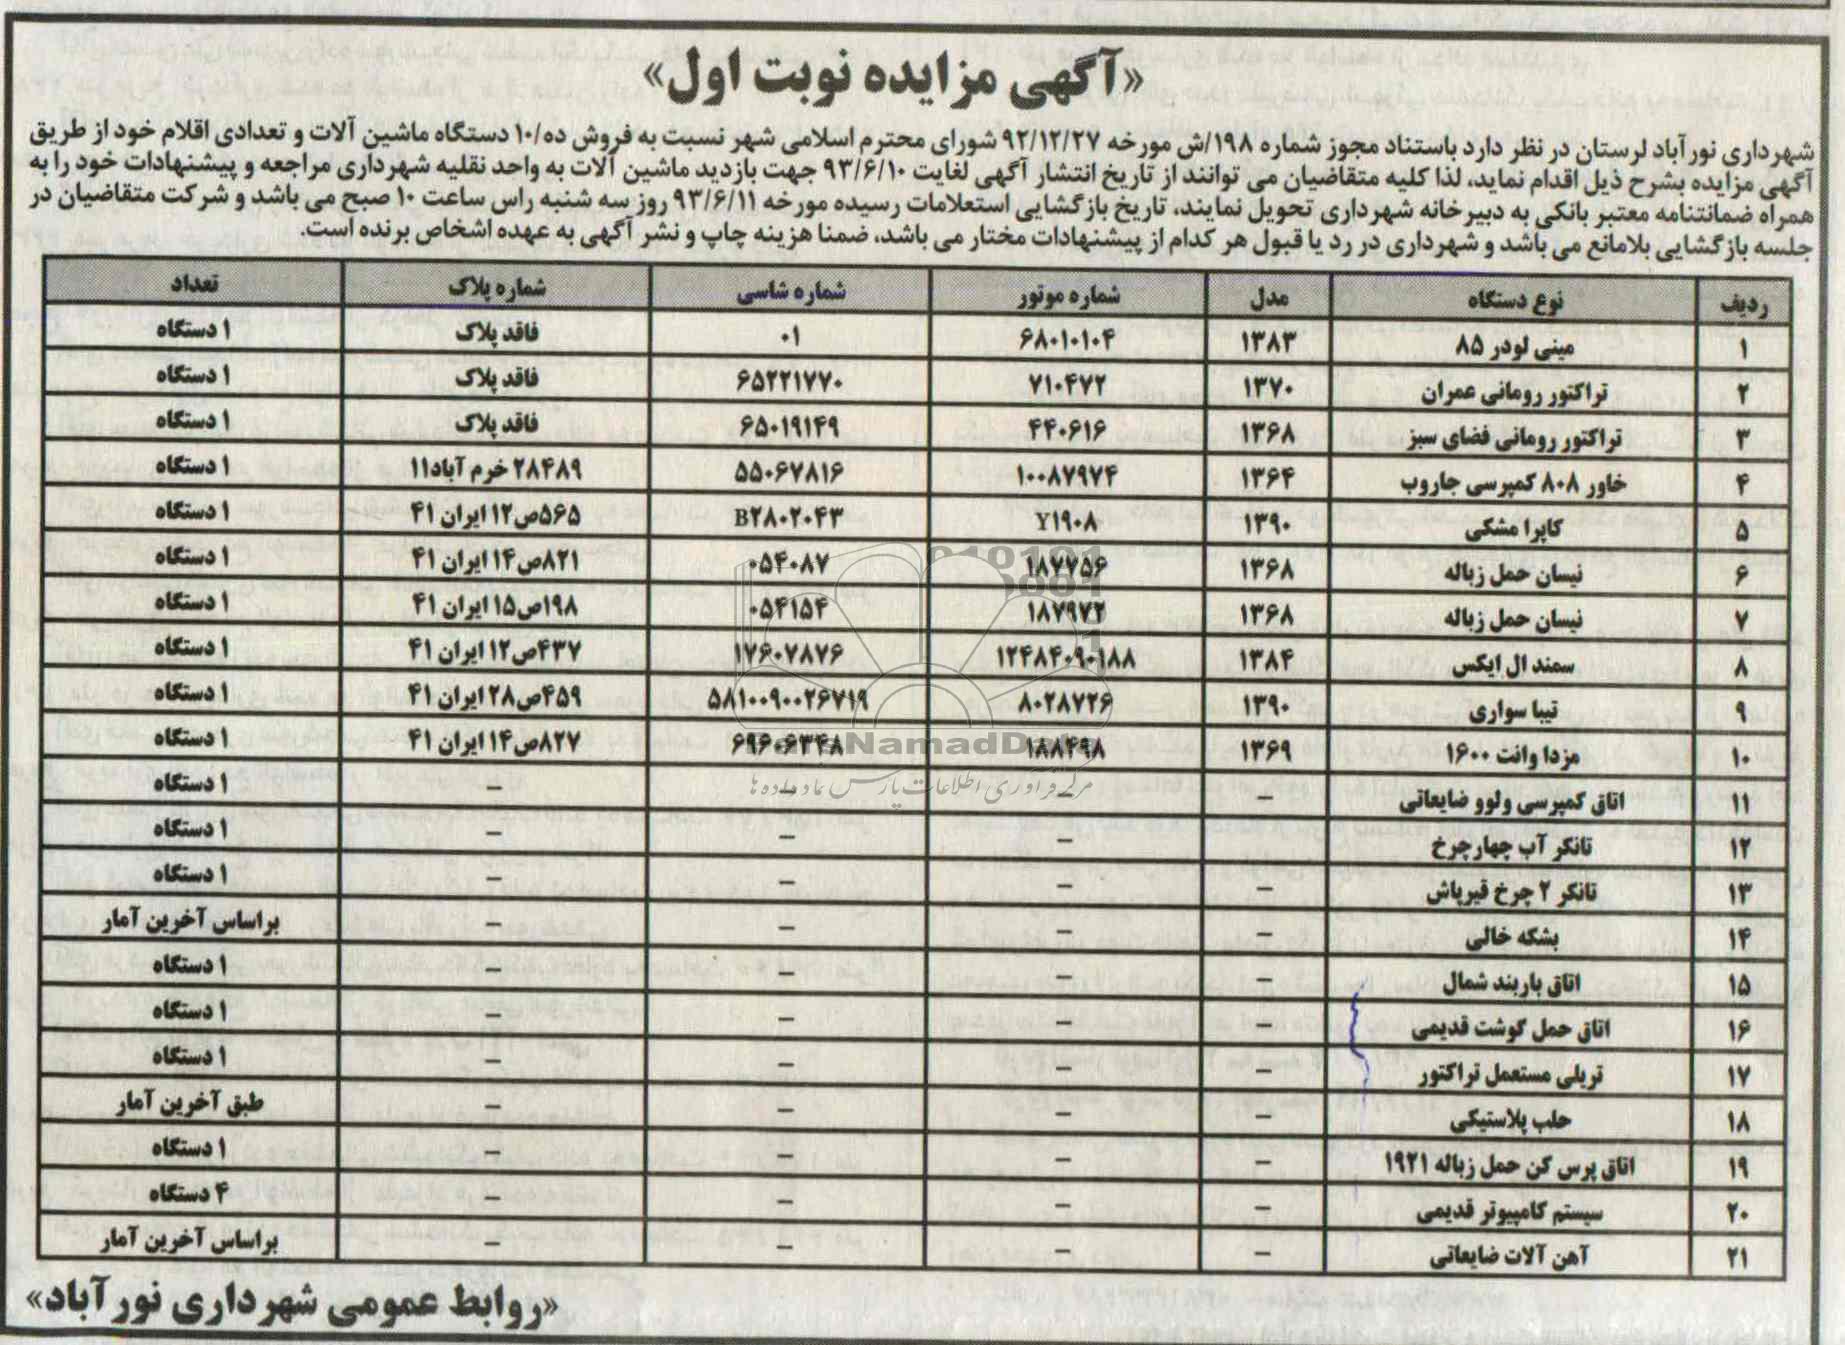 «آگهی مزایده نوبت اول»
شهرداری نورآباد لرستان در نظر دارد باستناد مجوز شماره ۱۹۸/ش مورخه ۹۲/۱۲/۲۷ شورای محترم اسلامی شهر نسبت به فروش ده/۱۰ دستگاه ماشین آلات و تعدادی اقلام خود از طریق
آگهی مزایده بشرح ذیل اقدام نماید، لذا کلیه متقاضیان می توانند از تاریخ انتشار آگهی لغایت ۹۳/۶/۱۰ جهت بازدید ماشین آلات به واحد نقلیه شهرداری مراجعه و پیشنهادات خود را به
همراه ضمانتنامه معتبر بانکی به دبیرخانه شهرداری تحویل نمایند، تاریخ بازگشایی استعلامات رسیده مورخه ۹۳/۶/۱۱ روز سه شنبه راس ساعت ۱۰ صبح می باشد و شرکت متقاضیان در
جلسه بازگشایی بلامانع می باشد و شهرداری در رد یا قبول هر کدام از پیشنهادات مختار می باشد، ضمنا هزینه چاپ و نشر آگهی به عهده اشخاص برنده است.
ردیف نوع دستگاه مدل شماره موتور شماره شاسی شماره پلاک تعداد
۱ مینی لودر ۸۵ ۱۳۸۳ ۶۸۰۱۰۱۰۴ ۰۱ فاقد پلاک ۱ دستگاه
۲ تراکتور رومانی عمران ۱۳۷۰ ۷۱۰۴۷۲ ۶۵۲۲۱۷۷۰ فاقد پلاک ۱ دستگاه
۳ تراکتور رومانی فضای سبز ۱۳۶۸ ۴۴۰۶۱۶ ۶۵۰۱۹۱۴۹ فاقد پلاک ۱ دستگاه
۴ خاور ۸۰۸ کمپرسی جاروب ۱۳۶۴ ۱۰۰۸۷۹۷۴ ۵۵۰۶۷۸۱۶ ۲۸۴۸۹ خرم آباد۱۱ ۱ دستگاه
۵ کاپرا مشکی ۱۳۹۰ Y۱۹۰۸ B۲۸۰۲۰۴۳ ۵۶۵ص۱۲ ایران ۴۱ ۱ دستگاه
۶ نیسان حمل زباله ۱۳۶۸ ۱۸۷۷۵۶ ۰۵۴۰۸۷ ۸۲۱ص۱۴ ایران ۴۱ ۱ دستگاه
۷ نیسان حمل زباله ۱۳۶۸ ۱۸۷۹۷۲ ۰۵۴۱۵۴ ۱۹۸ص۱۵ ایران ۴۱ ۱ دستگاه
۸ سمند ال ایکس ۱۳۸۴ ۱۲۴۸۴۰۹۰۱۸۸ ۱۷۶۰۷۸۷۶ ۴۳۷ص۱۲ ایران ۴۱ ۱ دستگاه
۹ تیبا سواری ۱۳۹۰ ۸۰۲۸۷۲۶ ۵۸۱۰۰۹۰۰۲۶۷۱۹ ۴۵۹ص۲۸ ایران ۴۱ ۱ دستگاه
۱۰ مزدا وانت ۱۶۰۰ ۱۳۶۹ ۱۸۸۴۹۸ ۶۹۶۰۶۳۴۸ ۸۲۷ص۱۴ ایران ۴۱ ۱ دستگاه
۱۱ اتاق کمپرسی ولوو ضایعاتی – – – – ۱ دستگاه
۱۲ تانکر آب چهارچرخ – – – ۱ دستگاه
۱۳ تانکر ۲ چرخ قیرپاش – – – – ۱ دستگاه
۱۴ بشکه خالی – – – – براساس آخرین آمار
۱۵ اتاق باربند شمال – – – – ۱ دستگاه
۱۶ اتاق حمل گوشت قدیمی – – – – ۱ دستگاه
۱۷ تریلی مستعمل تراکتور – – – – ۱ دستگاه
۱۸ حلب پلاستیکی – – – – طبق آخرین آمار
۱۹ اتاق پرس کن حمل زباله ۱۹۲۱ – – – – ۱ دستگاه
۲۰ سیستم کامپیوتر قدیمی – – – – ۴ دستگاه
۲۱ آهن آلات ضایعاتی – – – – براساس آخرین آمار
«روابط عمومی شهرداری نورآباد»
مرکز فرآوری اطلاعات پارس نماد داده ها